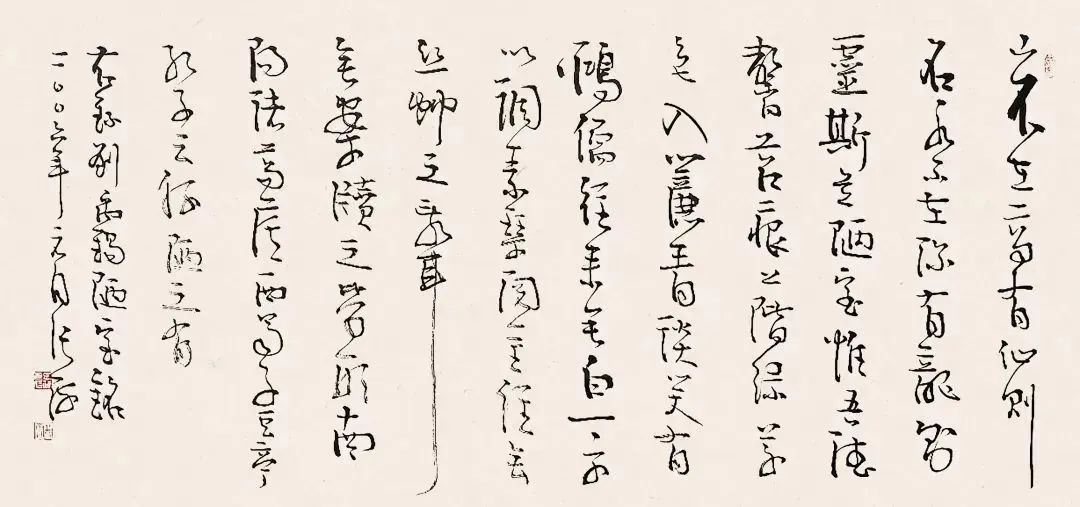 山不在高有仙則
名水不在深有龍則
靈斯是陋室惟吾德
馨苔痕上階綠草
色入簾青談笑有
鴻儒往來無白丁可
以調素琴閱金經無
絲竹之亂耳
無案牘之勞形南
陽諸葛廬西蜀子雲亭
孔子云何陋之有
右錄劉禹錫陋室銘
二〇〇六年元月張海